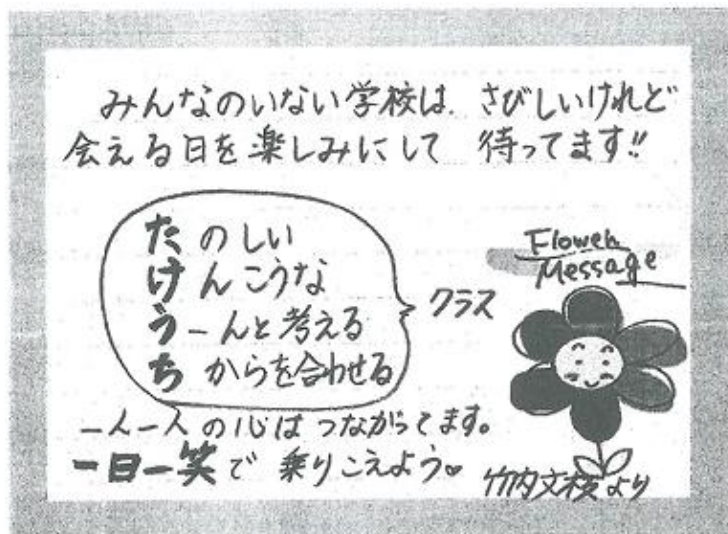 みんなのいない学校は、さびしいけれど
会える日を楽しみにして 待ってます!!
たのしい
けんこうな
うーんと考える
ちからを合わせる
クラス
Flower
Message
一人一人の心は つながってます。
一日一笑で 乗りこえよう♥
竹内文枝より